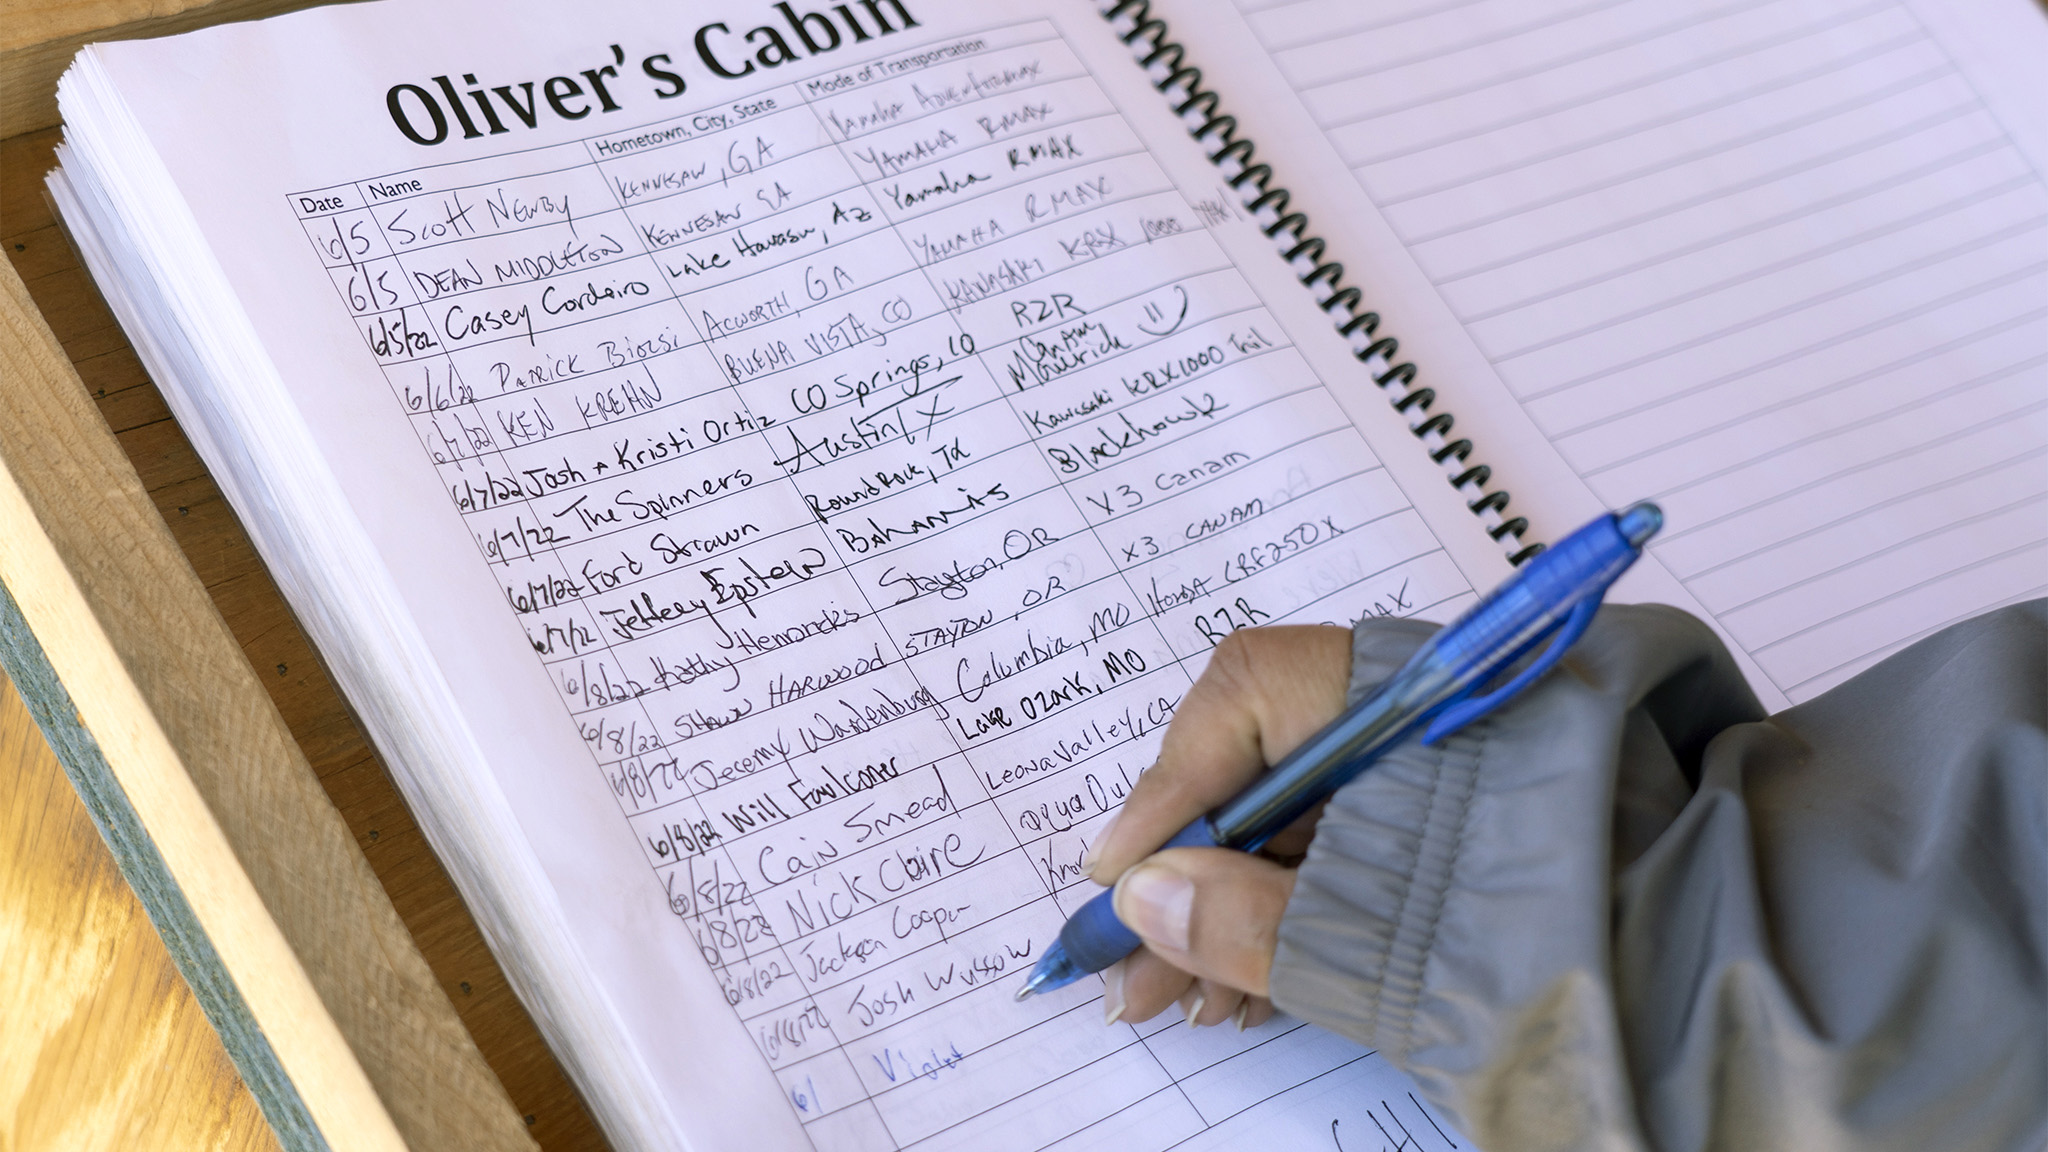 Oliver's Cabin
Date Name Hometown, City, State Mode of Transportation
6/5 Scott Newby Kennesaw, GA Yamaha Adventuremax
6/5 DEAN MIDDLETON KENNESAW GA YAMAHA RMAX
6/5/22 Casey Cordeiro Lake Havasu, Az Yamaha RMAX
6/6/22 PATRICK ACWORTH, GA YAMAHA RMAX
6/7/22 KEN KREHN BUENA VISTA, CO KAWASAKI KRX 1000
6/7/22 Josh + Kristi Ortiz CO Springs, CO RZR
6/7/22 The Spinners Austin TX CanAm Maverick
6/7/22 Ford Strawn Round Rock, TX Kawasaki KRX1000 Trail
6/7/22 Jeffery Epstein BAHAMAS Blackhawk
6/8/22 Kathy Hendricks Stayton, OR X3 Canam
6/8/22 SHAWN HARWOOD STAYTON, OR X3 CANAM
6/8/22 Jeremy Wardenburg Columbia, MO HONDA CRF250X
6/8/22 Will Faulconer Lake Ozark, MO RZR
6/8/22 Cain Smead Leona Valley, CA MAX
6/8/22 Nick Claire
6/8/22 Jackson Cooper
6/8/22 Josh Wussow
6/ Violet